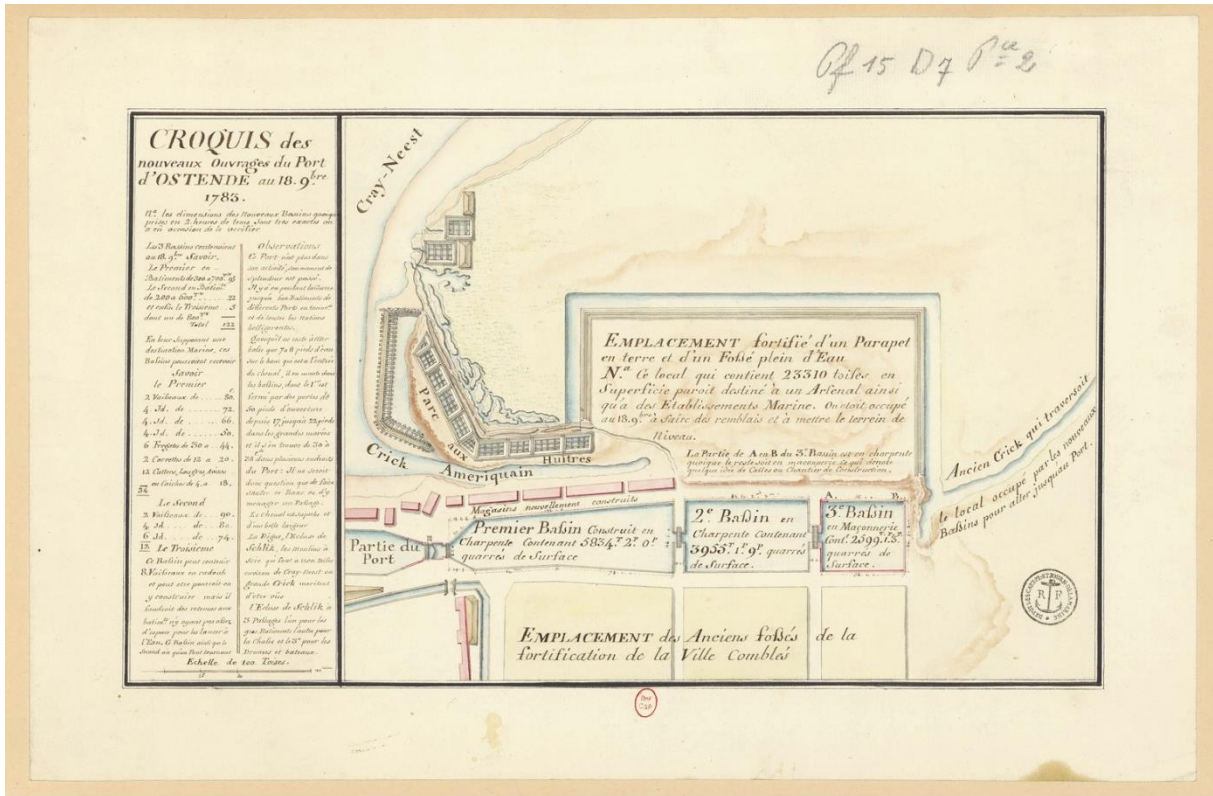 Pf 15 D7 Pce 2
CROQUIS des
nouveaux Ouvrages du Port
d'OSTENDE au 18. 9.bre
1783.
Na. les dimensions des Nouveaux Bassins quoique
prises en 2. heures de tems sont tres exactes
Les 3 Bassins contenoient
au 18. 9.bre Savoir.
Le Premier en
Batiments de 300 a 700.Tx 95
Le Second en Batim.ts
de 200 a 600.Tx ..... 22
et enfin le Troisieme .. 5
dont un de 800.Tx
Total 122
En leur Supposant une
destination Marine, ces
Bassins pouroient contenir
Savoir
le Premier
2. Vaisseaux de .... 80.
4. Id. de ....... 72.
4. Id. de ....... 66.
4. Id. de ....... 50.
6 Fregates de 30 a . 44.
2 Corvettes de 12 a . 20.
12 Cutters,
ou Caiches de 4. a 18.
34
Le Second
2. Vaisseaux de ... 90.
4. Id. .... de .. 80.
6 Id. ... de . 74.
12 Le Troisieme
Ce Bassin peut contenir
8. Vaisseaux en radoub
et peut etre pouroit on
y construire mais il
faudroit des retenues aux
batim.ts n'y ayant pas assez
d'espace pour les lancer à
l'Eau. Ce Bassin ainsi que le
Second
Observations
Ce Port n'est plus dans
son activité, son moment de
splendeur est passé.
Il y a eu pendant la Guerre
jusqu'a Batiments de
differents Ports
et de toutes les Nations
belligerantes.
Quoiqu'il ne reste à Mer
basse que 7 a 8 pieds d'eau
sur le banc qui est a l'entrée
du chenal, il en monte dans
les bassins, dont le 1er est
fermé par des portes de
50 pieds d'ouverture
depuis 17 jusqu'a 22 pieds
dans les grandes marées
et il y en trouve de 30 à
35 dans plusieurs endroits
du Port: Il ne seroit
donc question que de faire
sauter ce Banc ou d'y
menager un Passage.
Le Chenal est superbe et
d'une belle largeur
La Digue, l'Ecluse de
Schlik, les moulins à
Scie, qui sont a trois milles
environ de Cray-Neest ou
grande Crick meritent
d'etre vüs
l'Ecluse de Schlik a
3 Passages l'un pour les
gros Batiments l'autre pour
la Chasse et le 3e pour les
bateaux.
Echelle de 100 Toises.
Cray-Neest
Parc aux Huitres
Crick Ameriquain
EMPLACEMENT fortifié d'un Parapet
en terre et d'un Fossé plein d'Eau
N.a Ce local qui contient 23310 toises en
Superficie paroit destiné à un Arsenal ainsi
qu'a des Etablissements Marine. On etoit occupé
au 18. 9.bre à faire des remblais et à mettre le terrein de
Niveau.
La Partie de A en B du 3.e Bassin est en charpente
quoique le reste soit en maçonnerie, ce qui denote
quelque idée de Calles ou Chantier de Construction.
Magasins nouvellement construits
A. B.
Partie du
Port
Premier Bassin Construit en
Charpente Contenant 5834.T 2.P 0.P
quarrés de Surface
2.e Bassin en
Charpente Contenant
3955.T 1.P 9.P quarrés
de Surface.
3.e Bassin
en Maçonnerie
Cont.t 2599.T 1.P 3.P
quarrés de
Surface.
Ancien Crick qui traversoit
le local occupé par les nouveaux
Bassins pour aller jusqu'au Port.
EMPLACEMENT des Anciens fossés de la
fortification de la Ville Comblés
RF